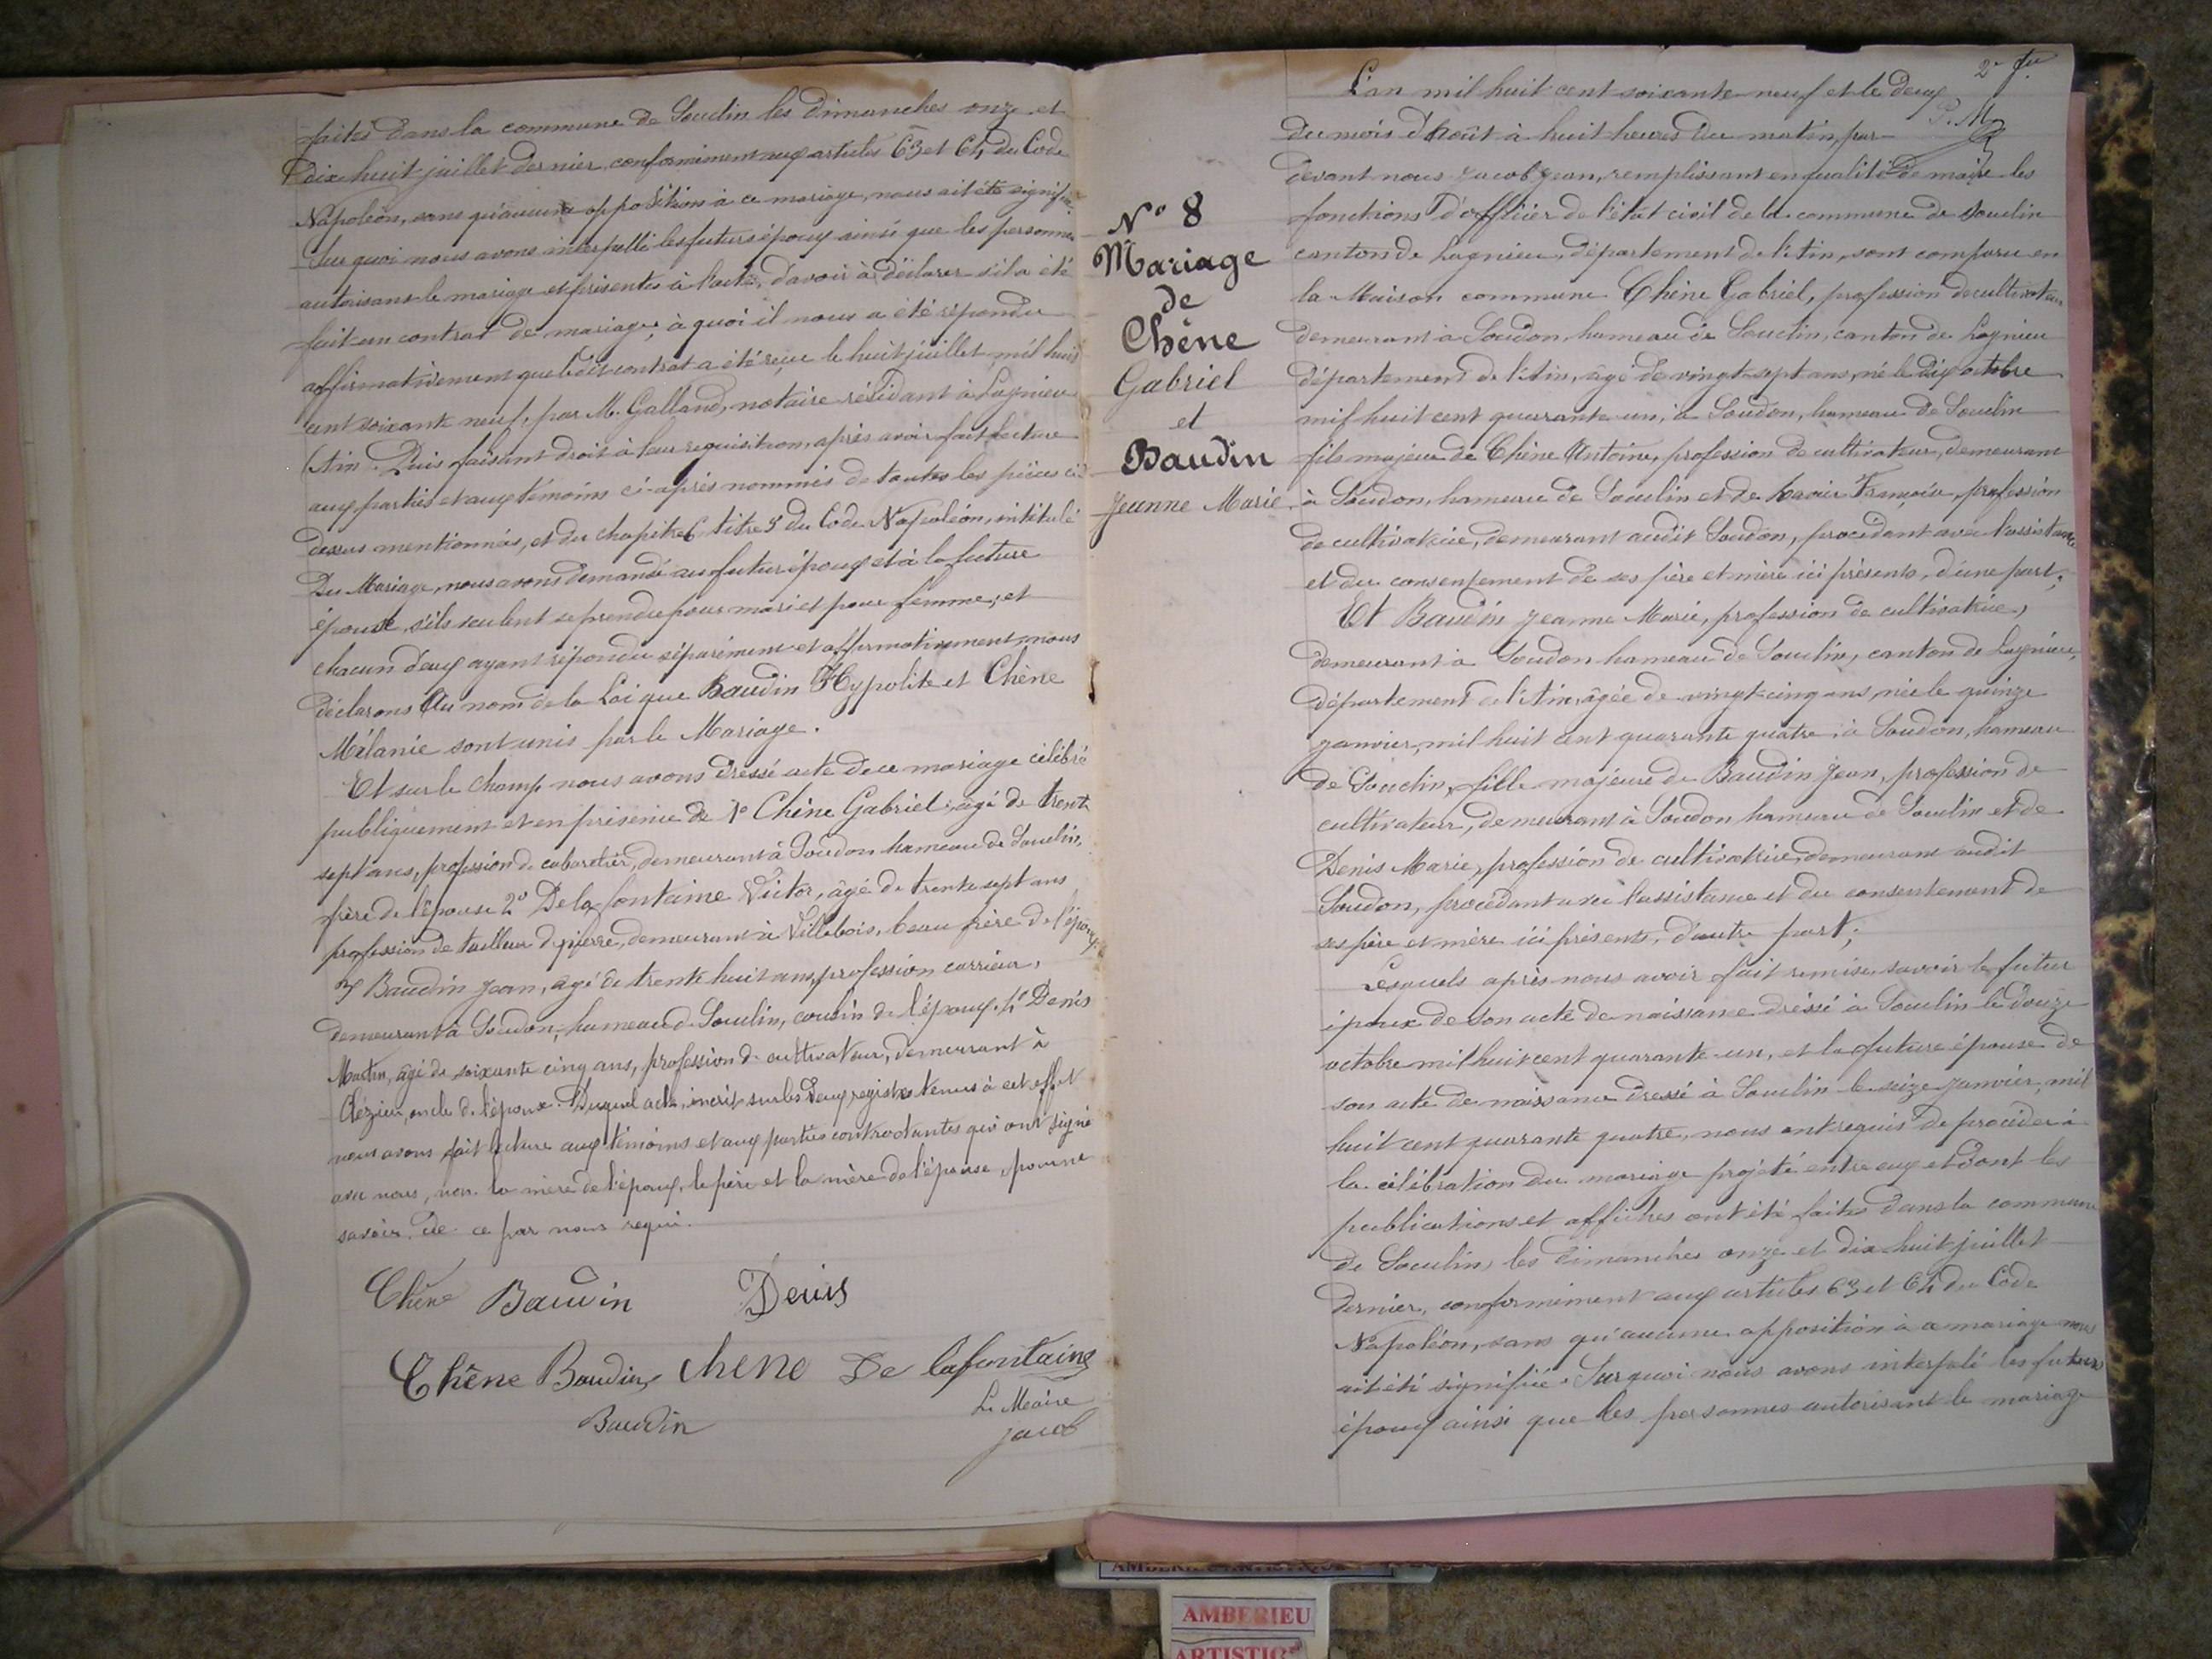 faites dans la commune de Souclin les dimanches onze et
dix huit juillet dernier, conformément aux articles 63 et 64 du Code
Napoléon, sans qu'aucune opposition à ce mariage, nous ait été signifiée.
Sur quoi nous avons interpellé les futurs époux ainsi que les personnes
autorisant le mariage et présentes à l'acte, d'avoir à déclarer s'il a été
fait un contrat de mariage, à quoi il nous a été répondu
affirmativement que ledit contrat a été reçu le huit juillet mil huit
cent soixante neuf, par M. Galland, notaire résidant à Lagnieu
(Ain. Puis faisant droit à leur requisition, après avoir fait lecture
aux parties et aux témoins ci-après nommés de toutes les pièces ci
dessus mentionnées, et du chapitre 6 titre 5 du Code Napoléon, intitulé
Du Mariage, nous avons demandé au futur époux et à la future
épouse, s'ils veulent se prendre pour mari et pour femme; et
chacun d'eux ayant répondu séparément et affirmativement, nous
déclarons Au nom de la Loi que Baudin Hypolite et Chêne
Mélanie sont unis par le Mariage.
Et sur le champ nous avons dressé acte de ce mariage célébré
publiquement et en présence de 1º Chêne Gabriel, âgé de trente
sept ans, profession de cabaretier, demeurant à Soudon hameau de Souclin,
frère de l'épouse 2º De lafontaine Victor, âgé de trente sept ans
profession de tailleur de pierre, demeurant à Villebois, beau frère de l'époux
3º Baudin Jean, âgé de trente huit ans, profession carrieur,
demeurant à Soudon, hameau de Souclin, cousin de l'époux. 4º Denis
Martin, âgé de soixante cinq ans, profession de cultivateur, demeurant à
Clézieu, oncle de l'épouse. Duquel acte, inscrit sur les deux registres tenus à cet effet
nous avons fait lecture aux témoins et aux parties contractantes qui ont signé
avec nous, non la mère de l'époux, le père et la mère de l'épouse, pour ne
savoir, de ce par nous requi.
Chêne Baudin Denis
Chêne Baudin chene De lafontaine
Baudin
Le Maire
Jacob
2e
P. M.
Nº 8
Mariage
de
Chêne
Gabriel
et
Baudin
Jeanne Marie
L'an mil huit cent soixante neuf et le deux
du mois d'Août à huit heures du matin, par-
devant nous Jacob Jean, remplissant en qualité de maire les
fonctions d'officier de l'état civil de la commune de Souclin
canton de Lagnieu, département de l'Ain, sont comparu en
la Maison commune Chêne Gabriel, profession de cultivateur
demeurant à Soudon, hameau de Souclin, canton de Lagnieu
département de l'Ain, âgé de vingt-sept ans, né le dix octobre
mil huit cent quarante un, à Soudon, hameau de Souclin
fils majeur de Chêne Antoine, profession de cultivateur, demeurant
à Soudon, hameau de Souclin et de Françoise, profession
de cultivatrice, demeurant audit Soudon, procédant avec l'assistance
et du consentement de ses père et mère ici présents, d'une part;
Et Baudin Jeanne Marie, profession de cultivatrice,
demeurant à Soudon hameau de Souclin, canton de Lagnieu,
département de l'Ain, âgée de vingt-cinq ans, née le quinze
janvier, mil huit cent quarante quatre à Soudon, hameau
de Souclin, fille majeure de Baudin Jean, profession de
cultivateur, demeurant à Soudon hameau de Souclin et de
Denis Marie, profession de cultivatrice, demeurant audit
Soudon, procédant avec l'assistance et du consentement de
ses père et mère ici présents, d'autre part;
Lesquels après nous avoir fait remise savoir le futur
époux de son acte de naissance dressé à Souclin le douze
octobre mil huit cent quarante-un, et la future épouse de
son acte de naissance dressé à Souclin le seize janvier, mil
huit cent quarante quatre, nous ont requis de procéder à
la célébration du mariage projeté entre eux et dont les
publications et affiches ont été faites dans la commune
de Souclin, les dimanches onze et dix huit juillet
dernier, conformément aux articles 63 et 64 du Code
Napoléon, sans qu'aucune opposition à ce mariage nous
ait été signifiée. Sur quoi nous avons interpelé les futurs
époux ainsi que les personnes autorisant le mariage
AMBERIEU
ARTISTIQUE